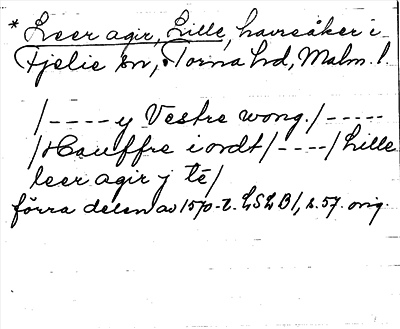 * Leer agir, Lille, havreåker i
Fjelie sn, Torna hd, Malm. l.
/----y Vestre wong./-----
/Hauffre i ordt/----/Lille
leer agir j té/
förra delen av 1570-t. LSLB1, s. 57. orig.